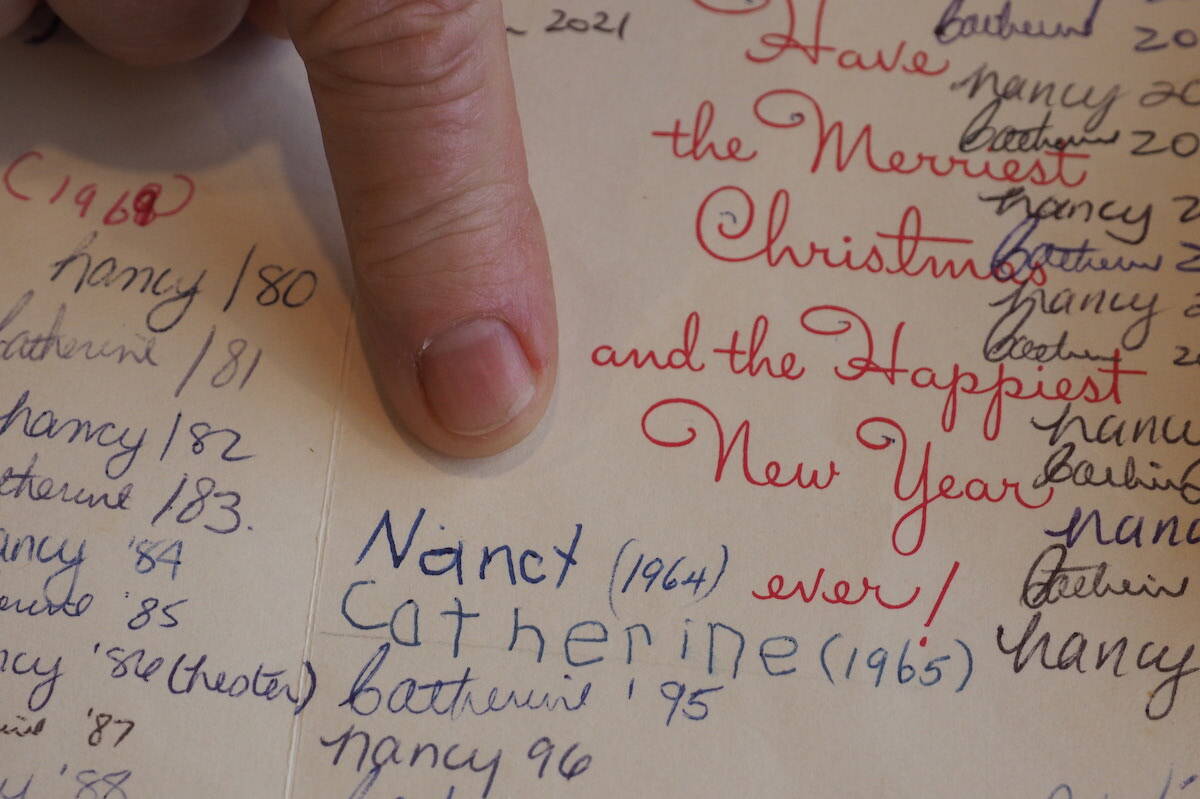 2021
(1969)
nancy /80
Catherine /81
nancy /82
therine /83.
ancy '84
erine '85
ncy '86 (hester)
'87
y '88
Have
the Merriest
Christmas
and the Happiest
New Year
ever!
Nancy (1964)
Catherine (1965)
Catherine '95
nancy 96
Catherine 20
nancy 20
Catherine 20
nancy 2
Catherine 2
nancy 2
Catherine 2
nancy
Catherine
nanc
Catherin
nancy